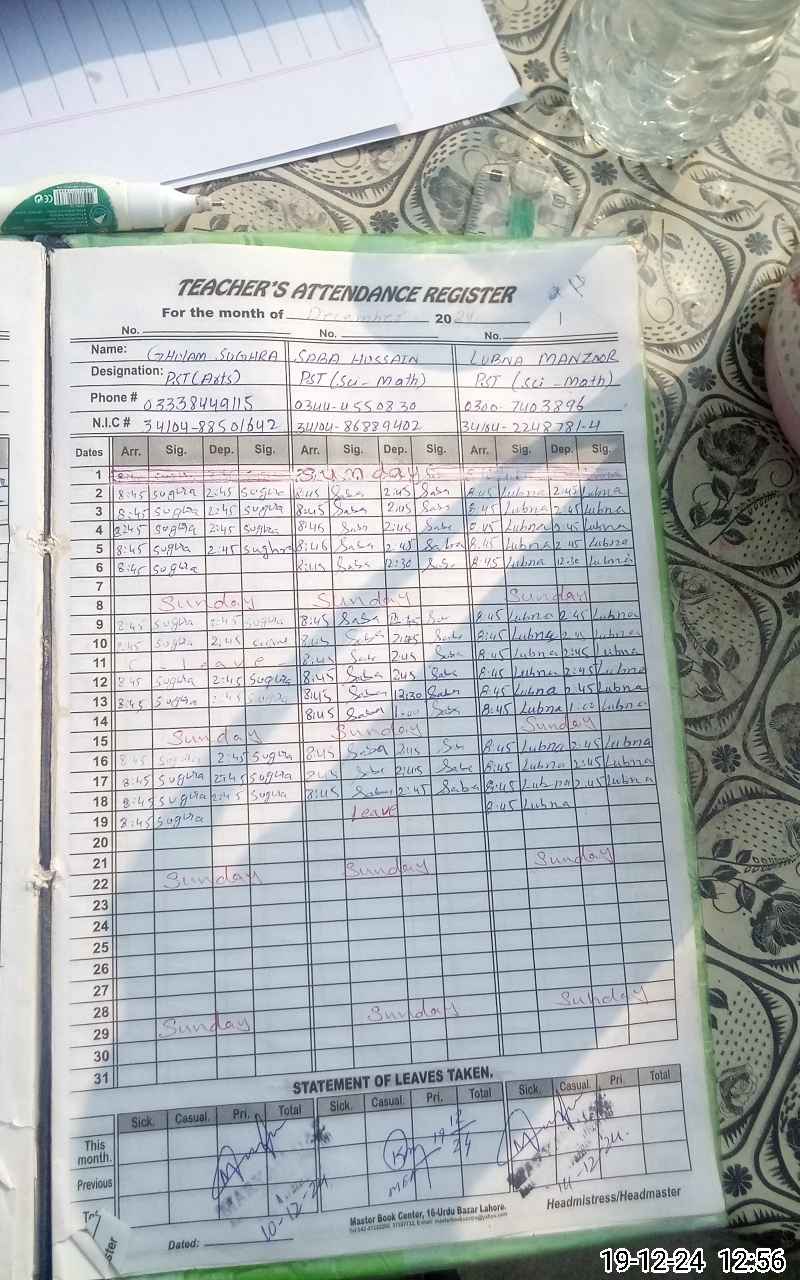 TEACHER'S ATTENDANCE REGISTER
For the month of December 2024
No. No. No.
Name: GHULAM SUGHRA SABA HUSSAIN LUBNA MANZOOR
Designation: PST (Arts) PST (Sci-Math) PST (Sci-Math)
Phone # 03338449115 0344-4550830 0300-7403896
N.I.C # 34104-88501642 34104-86889402 34104-2248781-4
Dates Arr. Sig. Dep. Sig. Arr. Sig. Dep. Sig. Arr. Sig. Dep. Sig.
1 Sunday
2 8:45 Sughra 2:45 Sughra 8:45 Saba 2:45 Saba 8:45 Lubna 2:45 Lubna
3 8:45 Sughra 2:45 Sughra 8:45 Saba 2:45 Saba 8:45 Lubna 2:45 Lubna
4 8:45 Sughra 2:45 Sughra 8:45 Saba 2:45 Saba 8:45 Lubna 2:45 Lubna
5 8:45 Sughra 2:45 Sughra 8:45 Saba 2:45 Saba 8:45 Lubna 2:45 Lubna
6 8:45 Sughra 8:45 Saba 12:30 8:45 Lubna 12:30 Lubna
7
8 Sunday Sunday Sunday
9 8:45 Sughra 2:45 Sughra 8:45 Saba 8:45 Lubna 2:45 Lubna
10 8:45 Sughra 2:45 8:45 Saba 2:45 Saba 8:45 Lubna Lubna
11 Leave 8:45 Saba 2:45 Saba 8:45 Lubna 2:45 Lubna
12 8:45 Sughra 2:45 Sughra 8:45 Saba 2:45 Saba 8:45 Lubna 2:45 Lubna
13 8:45 Sughra 2:45 Sughra 8:45 Saba 12:30 Saba 8:45 Lubna 2:45 Lubna
14 8:45 Saba 1:00 Saba 8:45 Lubna 1:00 Lubna
15 Sunday Sunday Sunday
16 8:45 2:45 Sughra 8:45 Saba 2:45 8:45 Lubna 2:45 Lubna
17 8:45 Sughra 2:45 Sughra 8:45 Saba 2:45 Saba 8:45 Lubna 2:45 Lubna
18 8:45 Sughra 2:45 Sughra 8:45 Saba 2:45 Saba 8:45 Lubna 2:45 Lubna
19 8:45 Sughra Leave 8:45 Lubna
20
21
22 Sunday Sunday Sunday
23
24
25
26
27
28
29 Sunday Sunday Sunday
30
31
STATEMENT OF LEAVES TAKEN.
Sick. Casual. Pri. Total Sick. Casual. Pri. Total Sick. Casual. Pri. Total
This month.
Previous
19/12/24
10-12-24 14-12-24.
Dated: Master Book Center, 16-Urdu Bazar Lahore. Headmistress/Headmaster
19-12-24 12:56